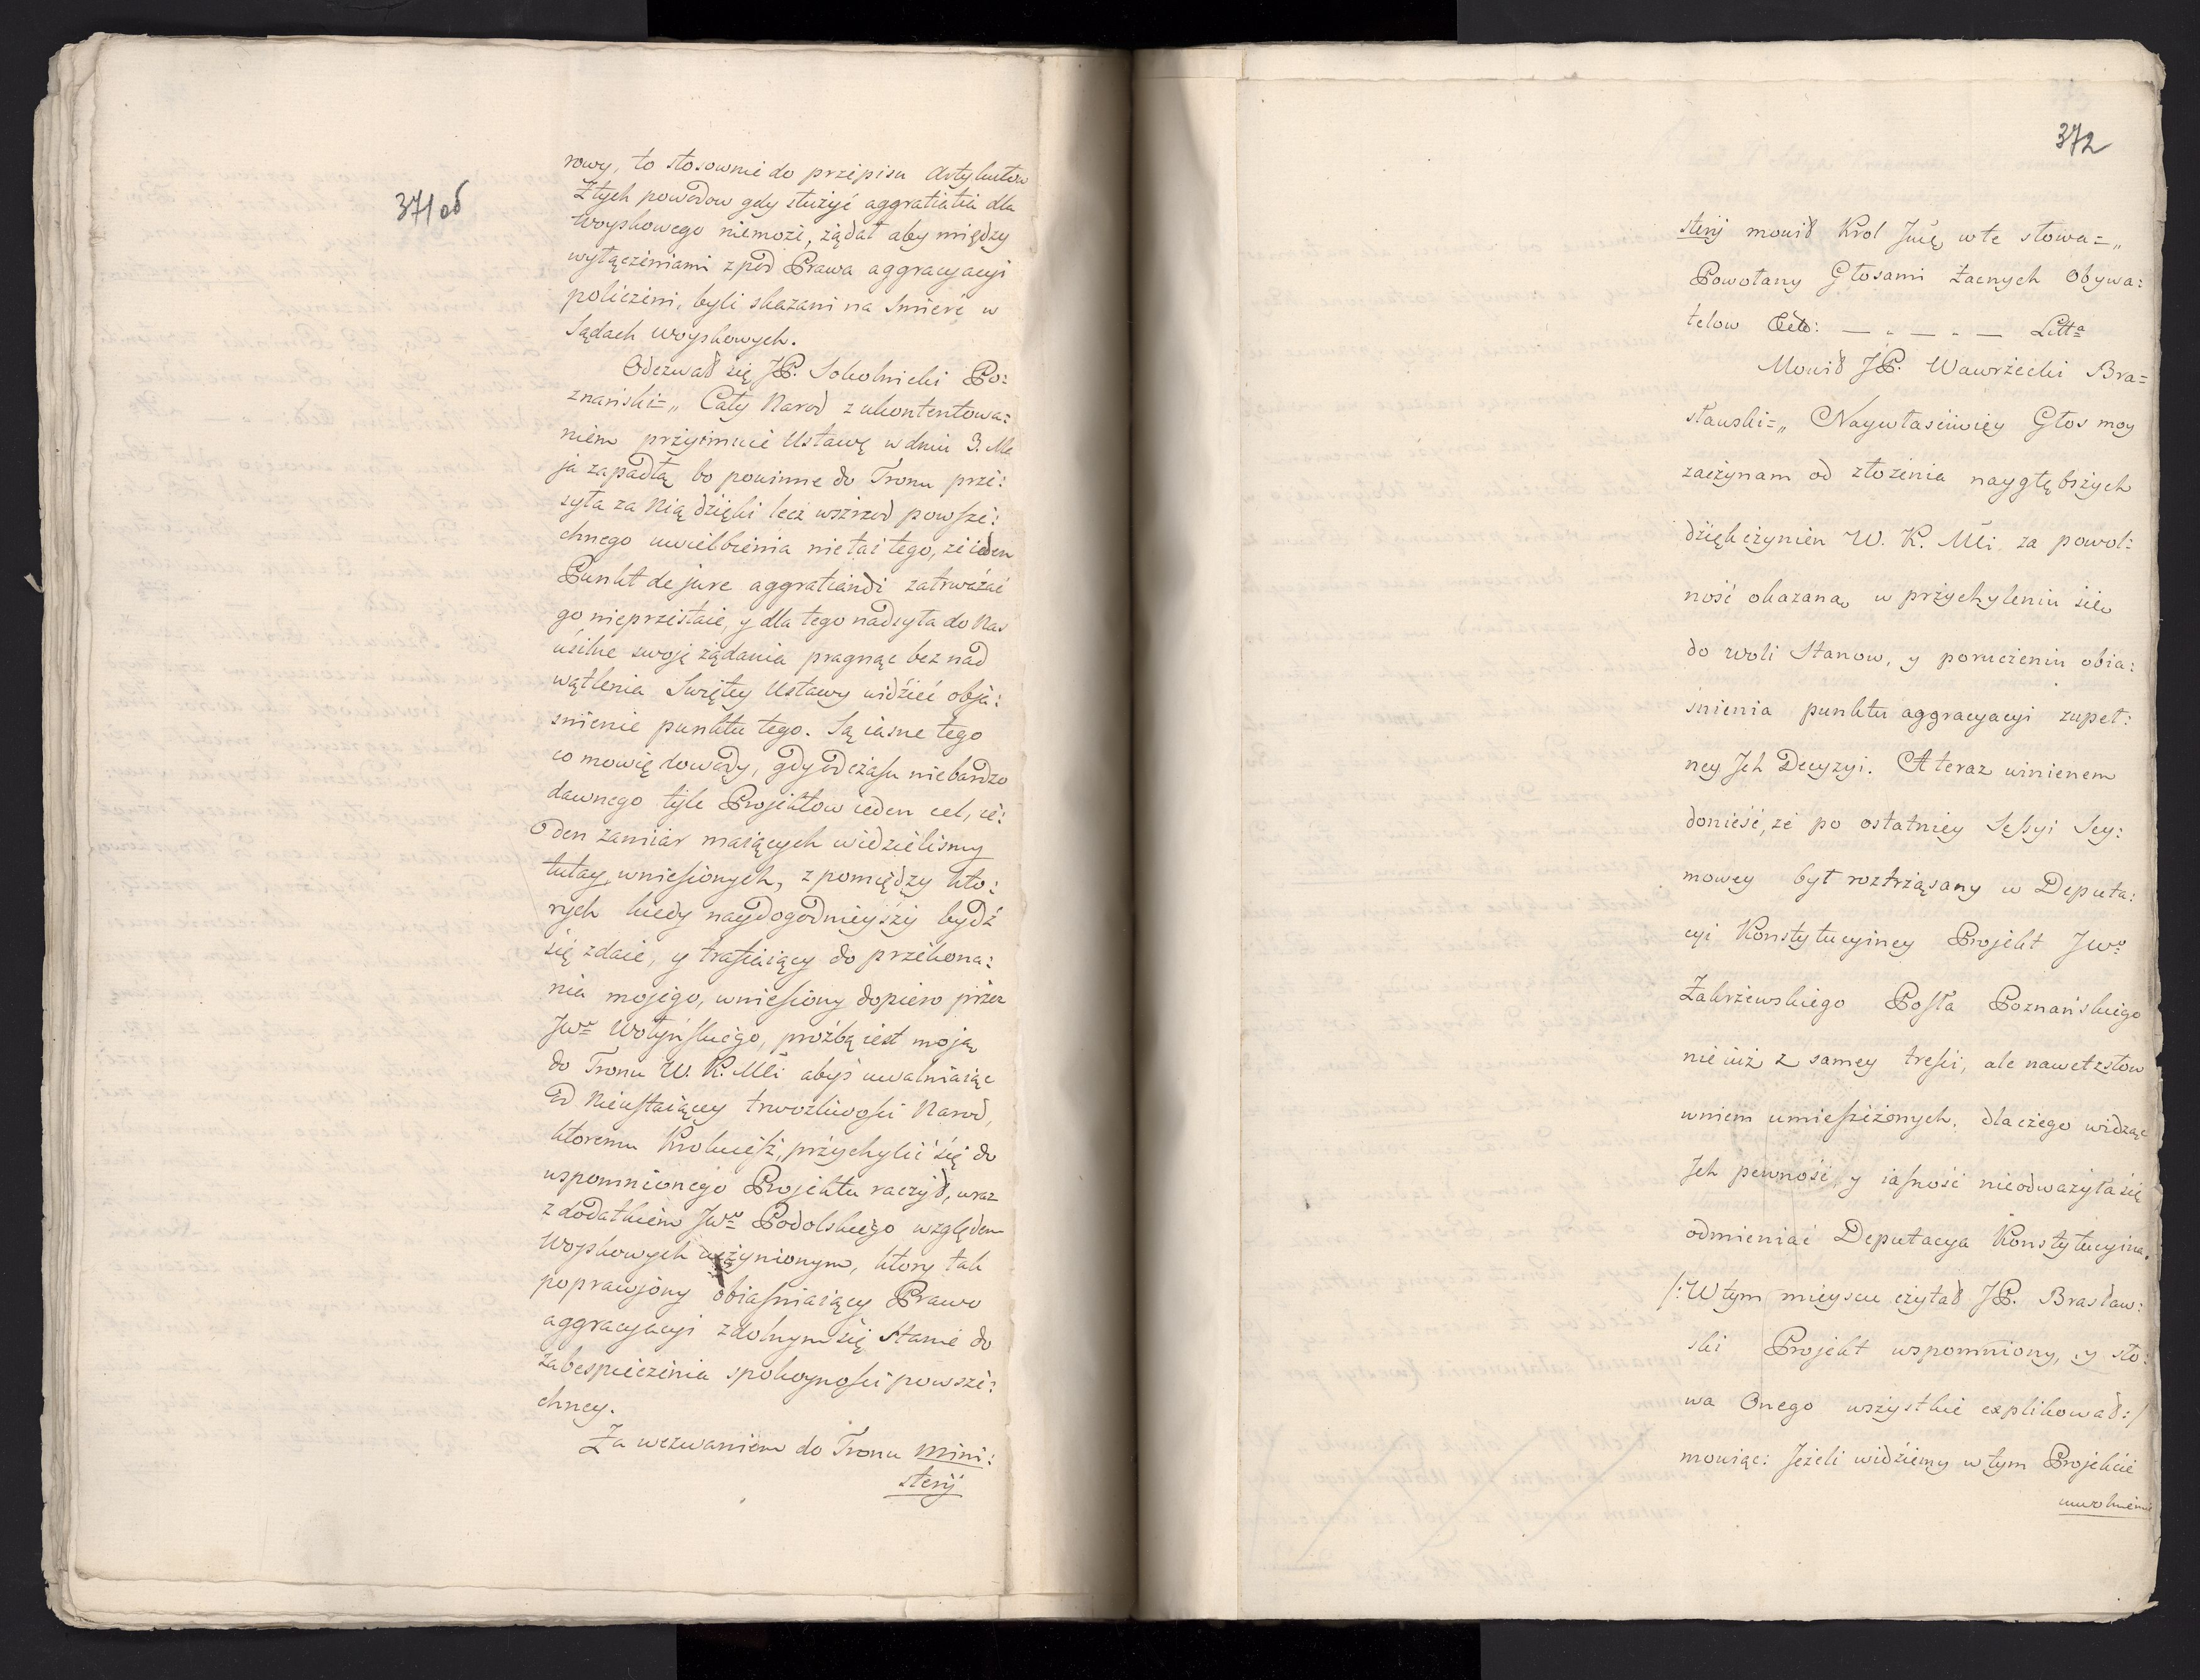 371 об
rowy, to stosownie do przepisu Artykułow
Z tych powodow gdy służyć aggratiatia dla
Woyskowego niemoże, żądał aby między
wyłączeniami z pod Prawa aggracyacyi
policzeni, byli skazani na Smierć w
Sądach Woyskowych.
Odezwał się JP. Sokolnicki Po:
znański =„ Cały Narod z ukontentowa:
niem przyimuie Ustawę w dniu 3. Ma
ja zapadłą, bo powinne do Tronu prze:
syła za Nią dzięki lecz wszrzod powsze:
chnego uwielbienia nie tai tego, że ieden
Punkt de jure aggratiandi zatrważać
go nieprzestaie, y dla tego nadsyła do Nas
usilne swoje żądania pragnąc bez nad
wątlenia Swiętey Ustawy widzieć obja:
snienie punktu tego. Są iasne tego
co mowię dowody, gdy od czasu niebardzo
dawnego tyle Projektow ieden cel, ie:
den zamiar maiących widzielismy
tutay wniesionych, z pomiędzy kto:
rych kiedy naydogodnieyszy bydź
się zdaie, y trafiaiący do przekona:
nia mojego, wniesiony dopiero przez
JWo Wołyńskiego, proźbą iest moją
do Tronu W. K. Mći abyś uwalniaiąc
od Nieustaiącey trwozliwości Narod,
ktoremu Krolujesz, przychylić się do
wspomnionego Projektu raczył, wraz
z dodatkiem JWo Podolskiego względem
Woyskowych uczynionym, ktory tak
poprawjony obiasniaiący Prawo
aggracyacyi zdolnym się stanie do
zabespieczenia spokoyności powsze:
chney.
Za wezwaniem do Tronu Mini:
sterij
372
sterij mowił Krol Jmć w te słowa =„
Powołany Głosami Zacnych Obywa:
telow — „ — „ — Litta
Mowił JP. Wawrzecki Bra=
sławski =„ Naywłasciwiey Głos moy
zaczynam od złożenia naygłębszych
dziękczynień W. K. Mći za powol:
ność okazaną w przychyleniu się
do woli Stanow, y poruczeniu obia:
snienia punktu aggracyacyi zupeł:
ney Jch Decyzyi. A teraz winienem
donieść, że po ostatniey Sessyi Sey:
mowey był roztrząsany w Deputa:
cyi Konstytucyiney Projekt JWo
Zakrzewskiego Posła Poznańskiego
nie iuż z samey treści, ale nawet z słow
w niem umieszczonych, dla czego widząc
Jch pewność, y iasność nieodważyła się
odmieniać Deputacya Konstytucyina.
/: W tym mieyscu czytał JP. Brasław:
ski Projekt wspomniony, y sło:
wa Onego wszystkie explikował :/
mowiąc: Jeżeli widziemy w tym Projekcie
uwolnienie